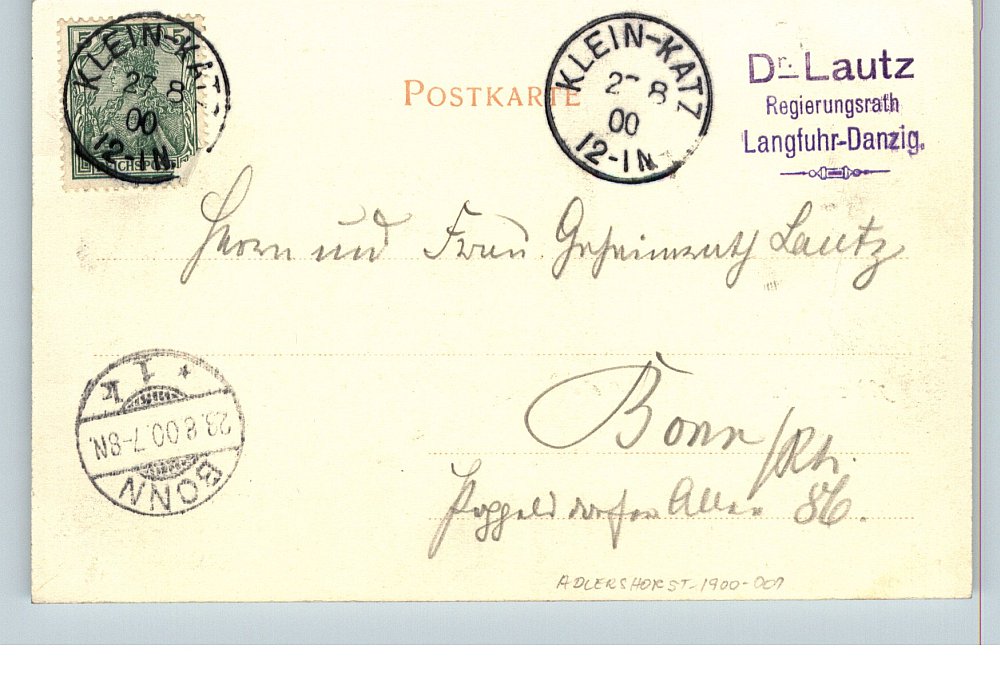 KLEIN-KATZ
2 8
00
12-1N
POSTKARTE
KLEIN-KATZ
2 8
00
12-1N
Dr. Lautz
Regierungsrath
Langfuhr-Danzig.
Herrn und Frau Geheimrath Lautz
Bonn/Rh.
Poppelsdorfer Allee 86.
BONN
23.8.00.7-8N.
* 1 k
ADLERSHORST-1900-001